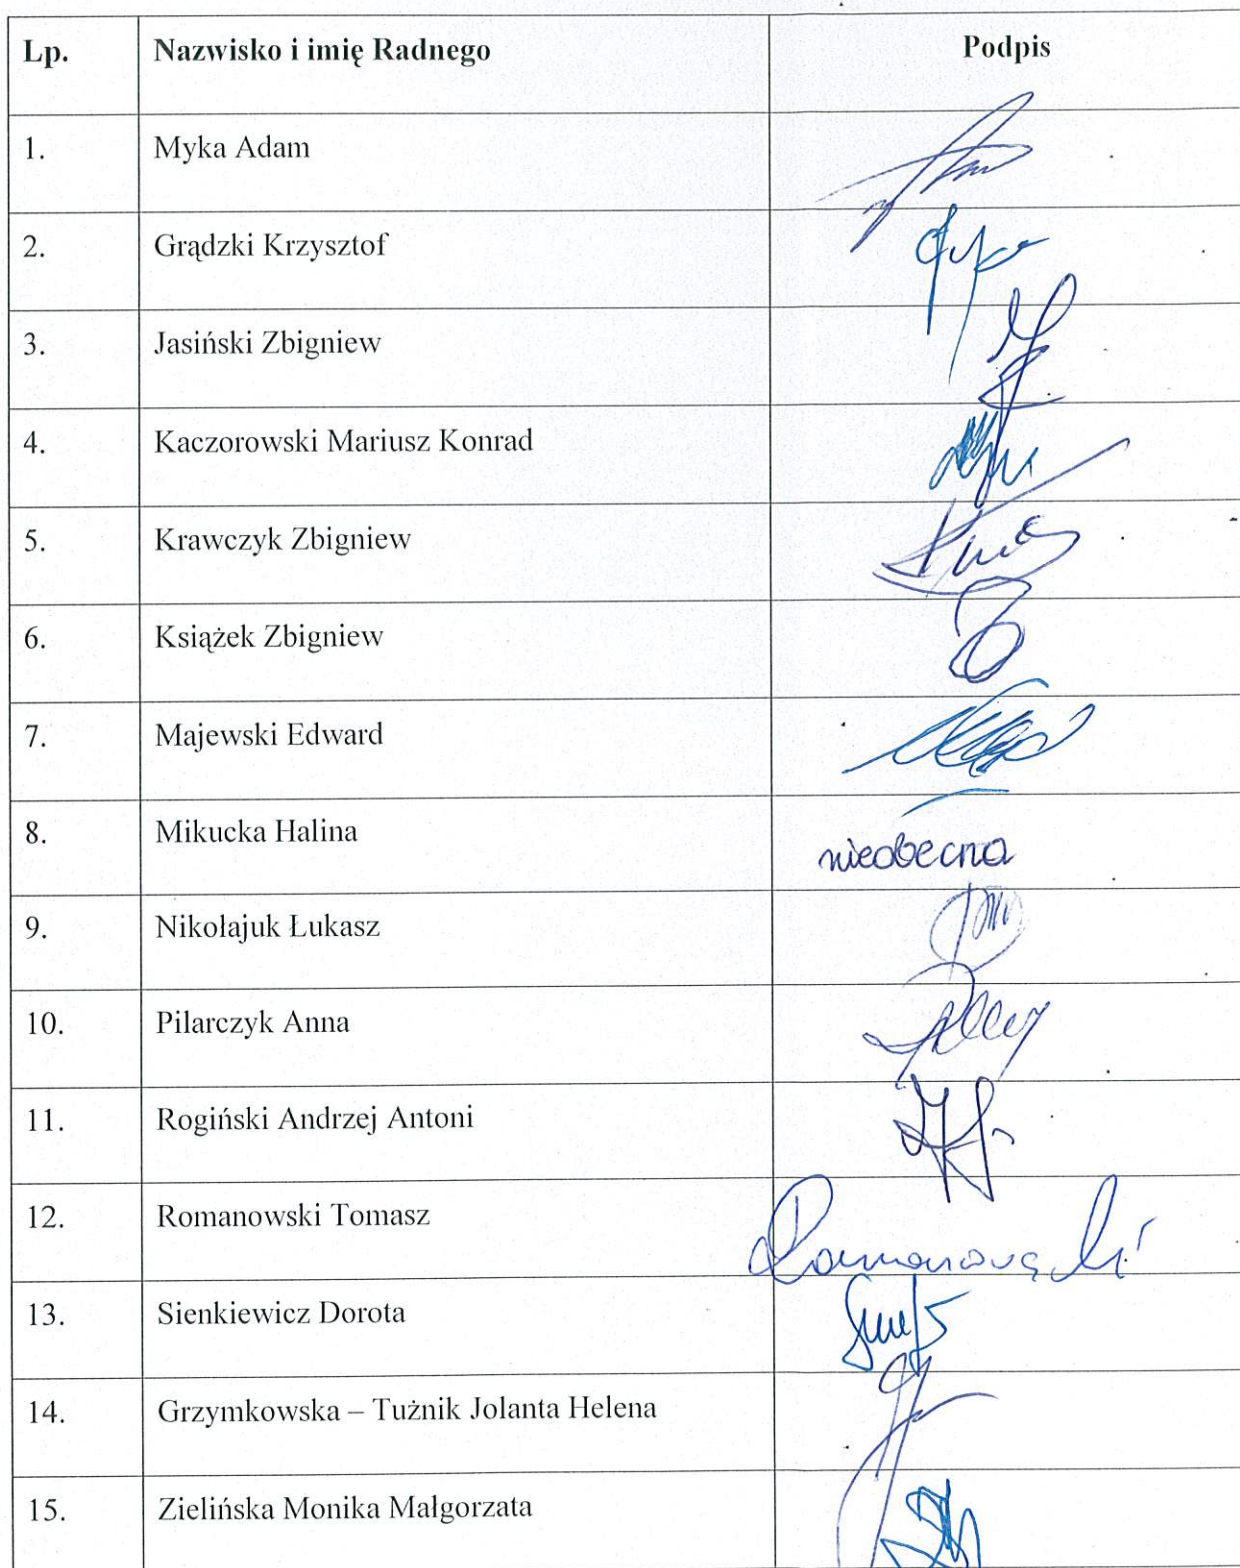 Lp. Nazwisko i imię Radnego Podpis
1. Myka Adam
2. Grądzki Krzysztof
3. Jasiński Zbigniew
4. Kaczorowski Mariusz Konrad
5. Krawczyk Zbigniew
6. Książek Zbigniew
7. Majewski Edward
8. Mikucka Halina nieobecna
9. Nikołajuk Łukasz
10. Pilarczyk Anna
11. Rogiński Andrzej Antoni
12. Romanowski Tomasz Romanowski
13. Sienkiewicz Dorota
14. Grzymkowska – Tużnik Jolanta Helena
15. Zielińska Monika Małgorzata